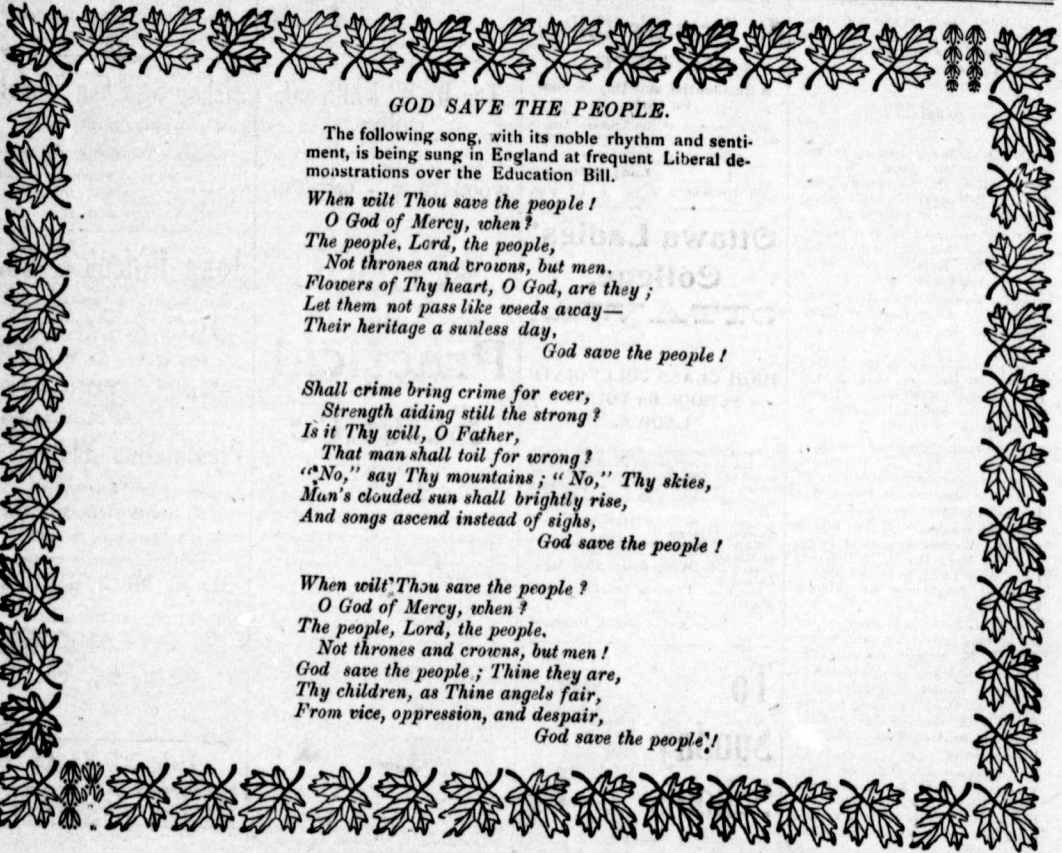 GOD SAVE THE PEOPLE.
The following song, with its noble rhythm and senti-
ment, is being sung in England at frequent Liberal de-
monstrations over the Education Bill.
When wilt Thou save the people !
O God of Mercy, when ?
The people, Lord, the people,
Not thrones and crowns, but men.
Flowers of Thy heart, O God, are they ;
Let them not pass like weeds away—
Their heritage a sunless day,
God save the people !
Shall crime bring crime for ever,
Strength aiding still the strong ?
Is it Thy will, O Father,
That man shall toil for wrong ?
"No," say Thy mountains ; "No," Thy skies,
Man's clouded sun shall brightly rise,
And songs ascend instead of sighs,
God save the people !
When wilt Thou save the people ?
O God of Mercy, when ?
The people, Lord, the people.
Not thrones and crowns, but men !
God save the people ; Thine they are,
Thy children, as Thine angels fair,
From vice, oppression, and despair,
God save the people !